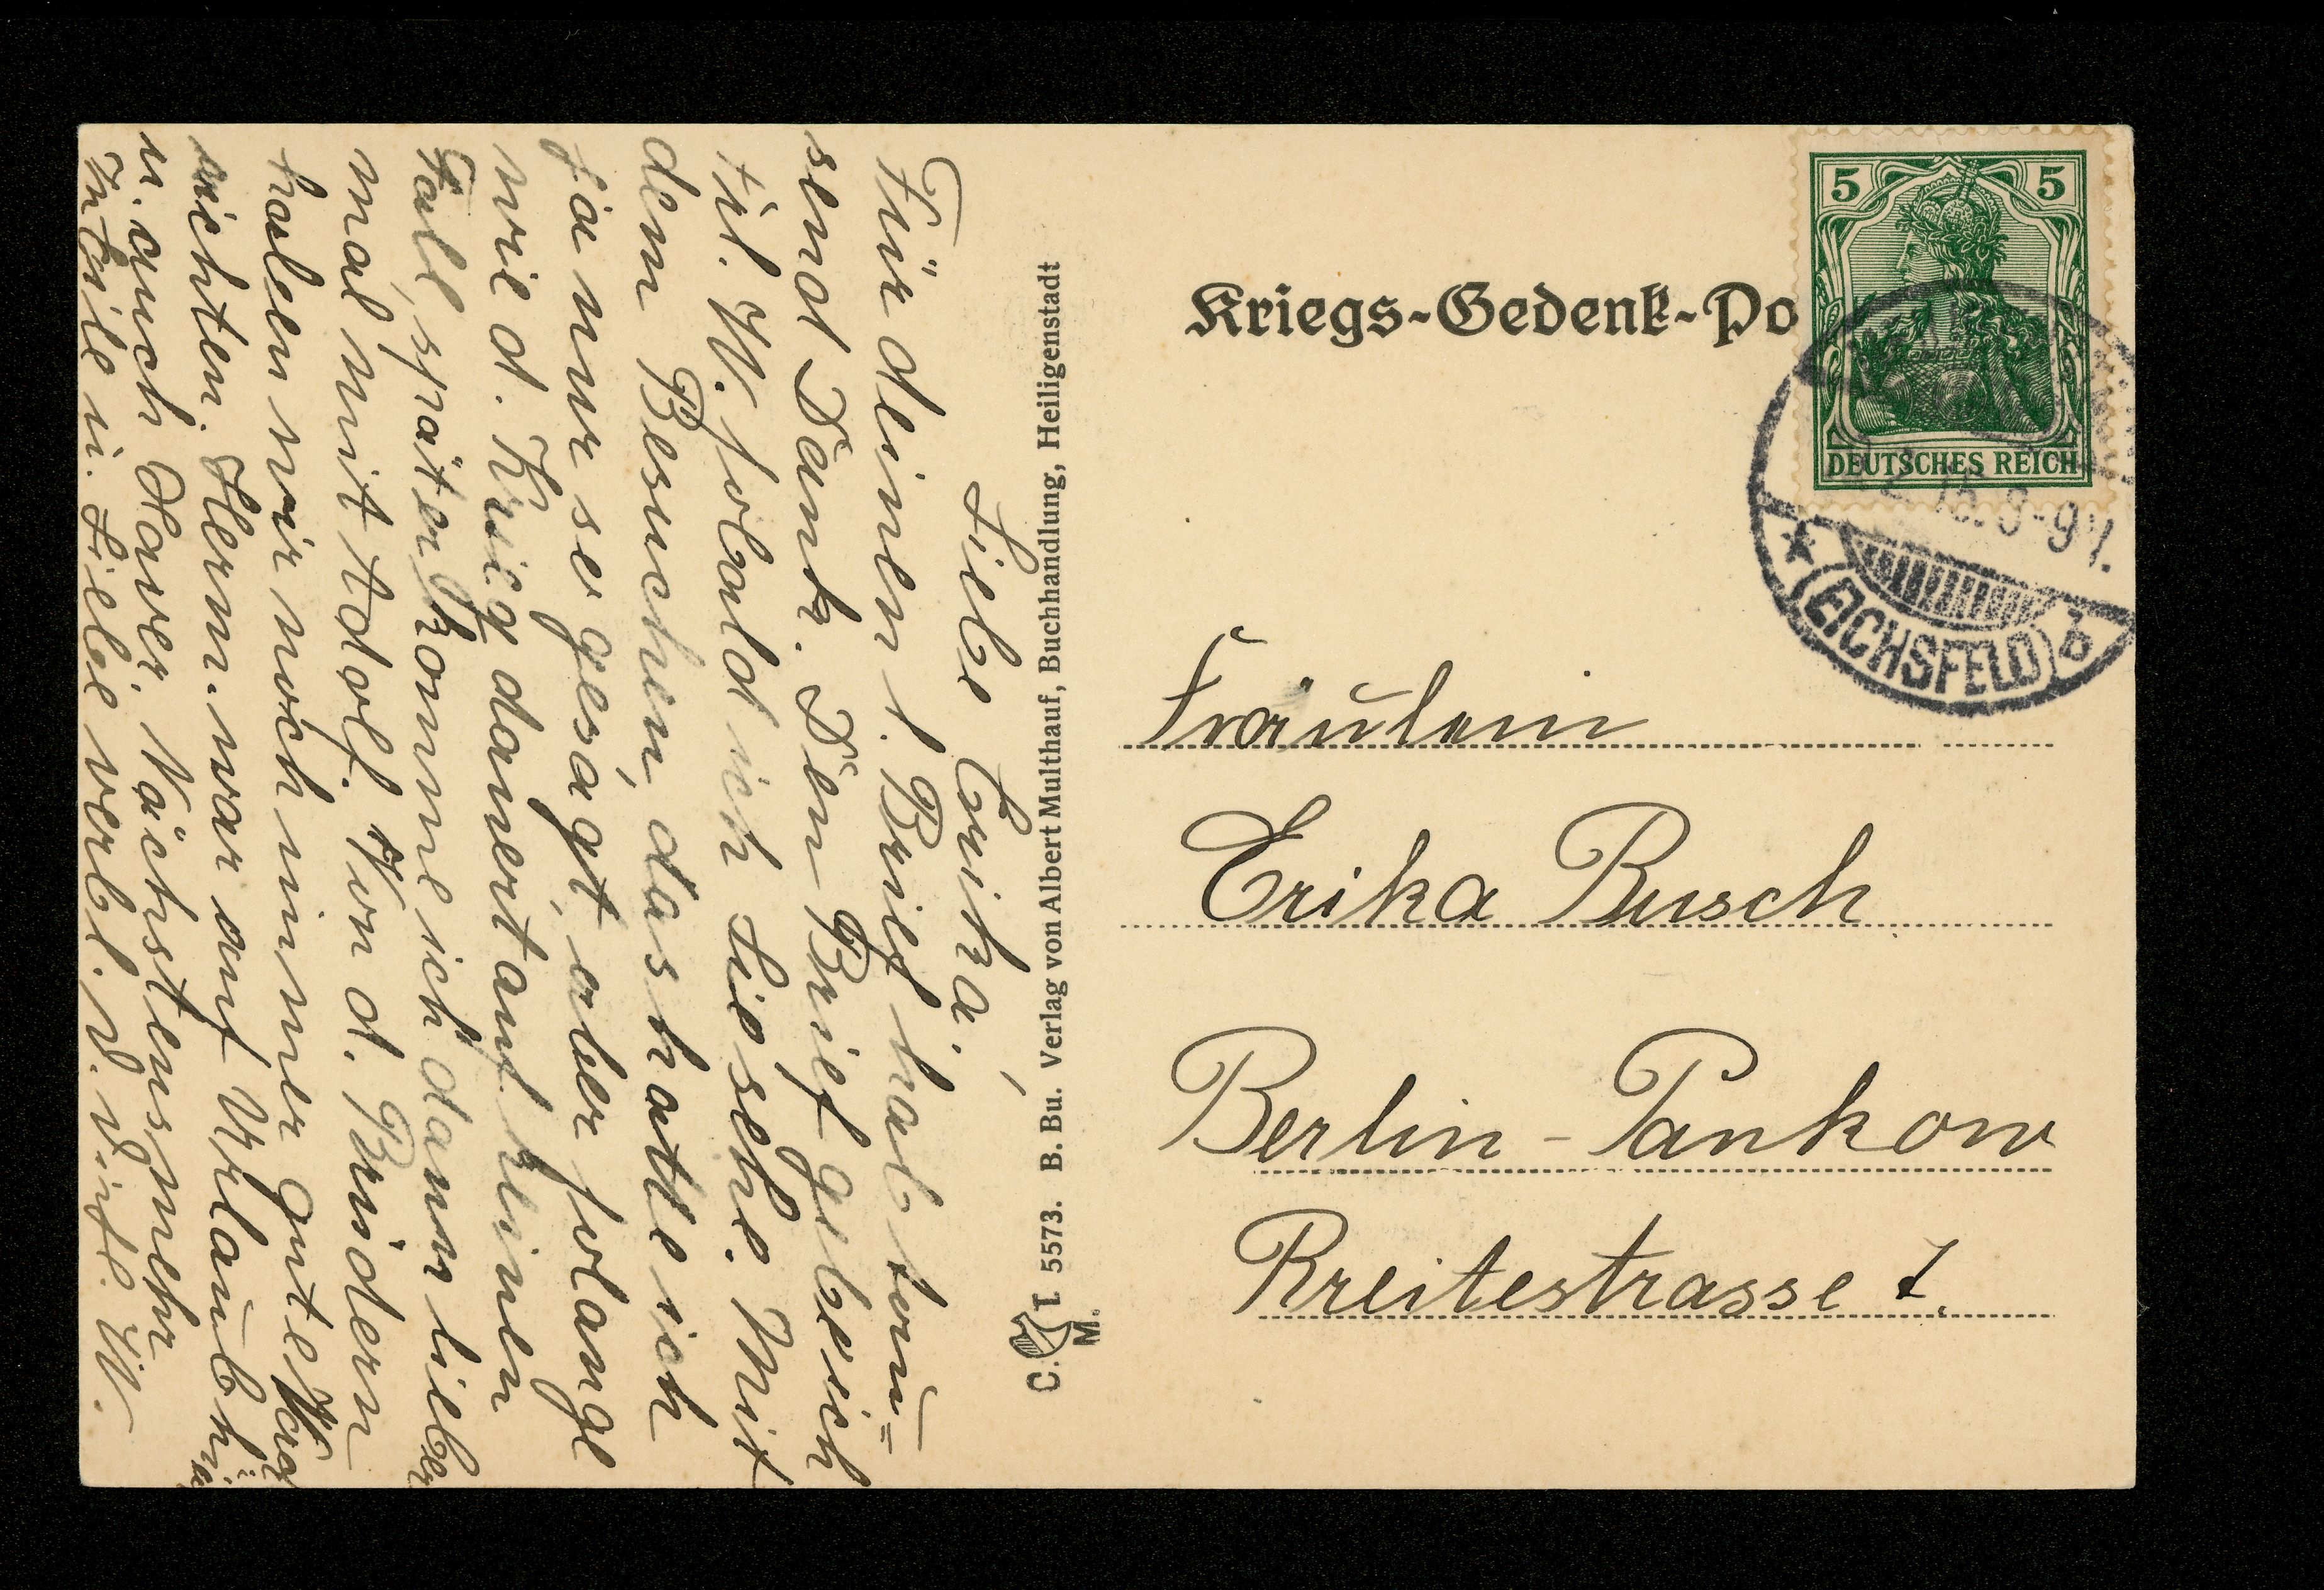 Kriegs-Gedenk-Po
5 5
DEUTSCHES REICH
15. 8-9V.
EICHSFELD
b
Fräulein
Erika Busch
Berlin - Pankow
Breitestrasse
C. T. M. I. 5573. B. Bu. Verlag von Albert Multhauf, Buchhandlung, Heiligenstadt
Liebe Erika,
Für deinen l. Brief hab tau=
send Dank. Den Brief geb ich
Frl. W. sobald ich Sie sehe. Mit
dem Besuchen, das hatte ich
ja nur so gesagt, aber solange
wie d. Krieg dauert auf keinen
Fall, später komme ich dann lieber
mal mit Adolf. Von d. Brüdern
haben wir noch immer gute Nach
richten. Herm. war auf Urlaub hier
u. auch Xaver. Nächstens mehr
In Eile u. Liebe verbl. d. W.